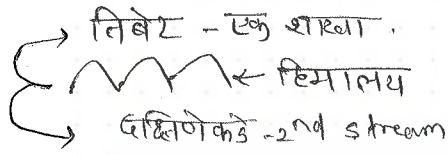 तिबेट - एक शाखा .
← हिमालय
दक्षिणेकडे - 2nd stream